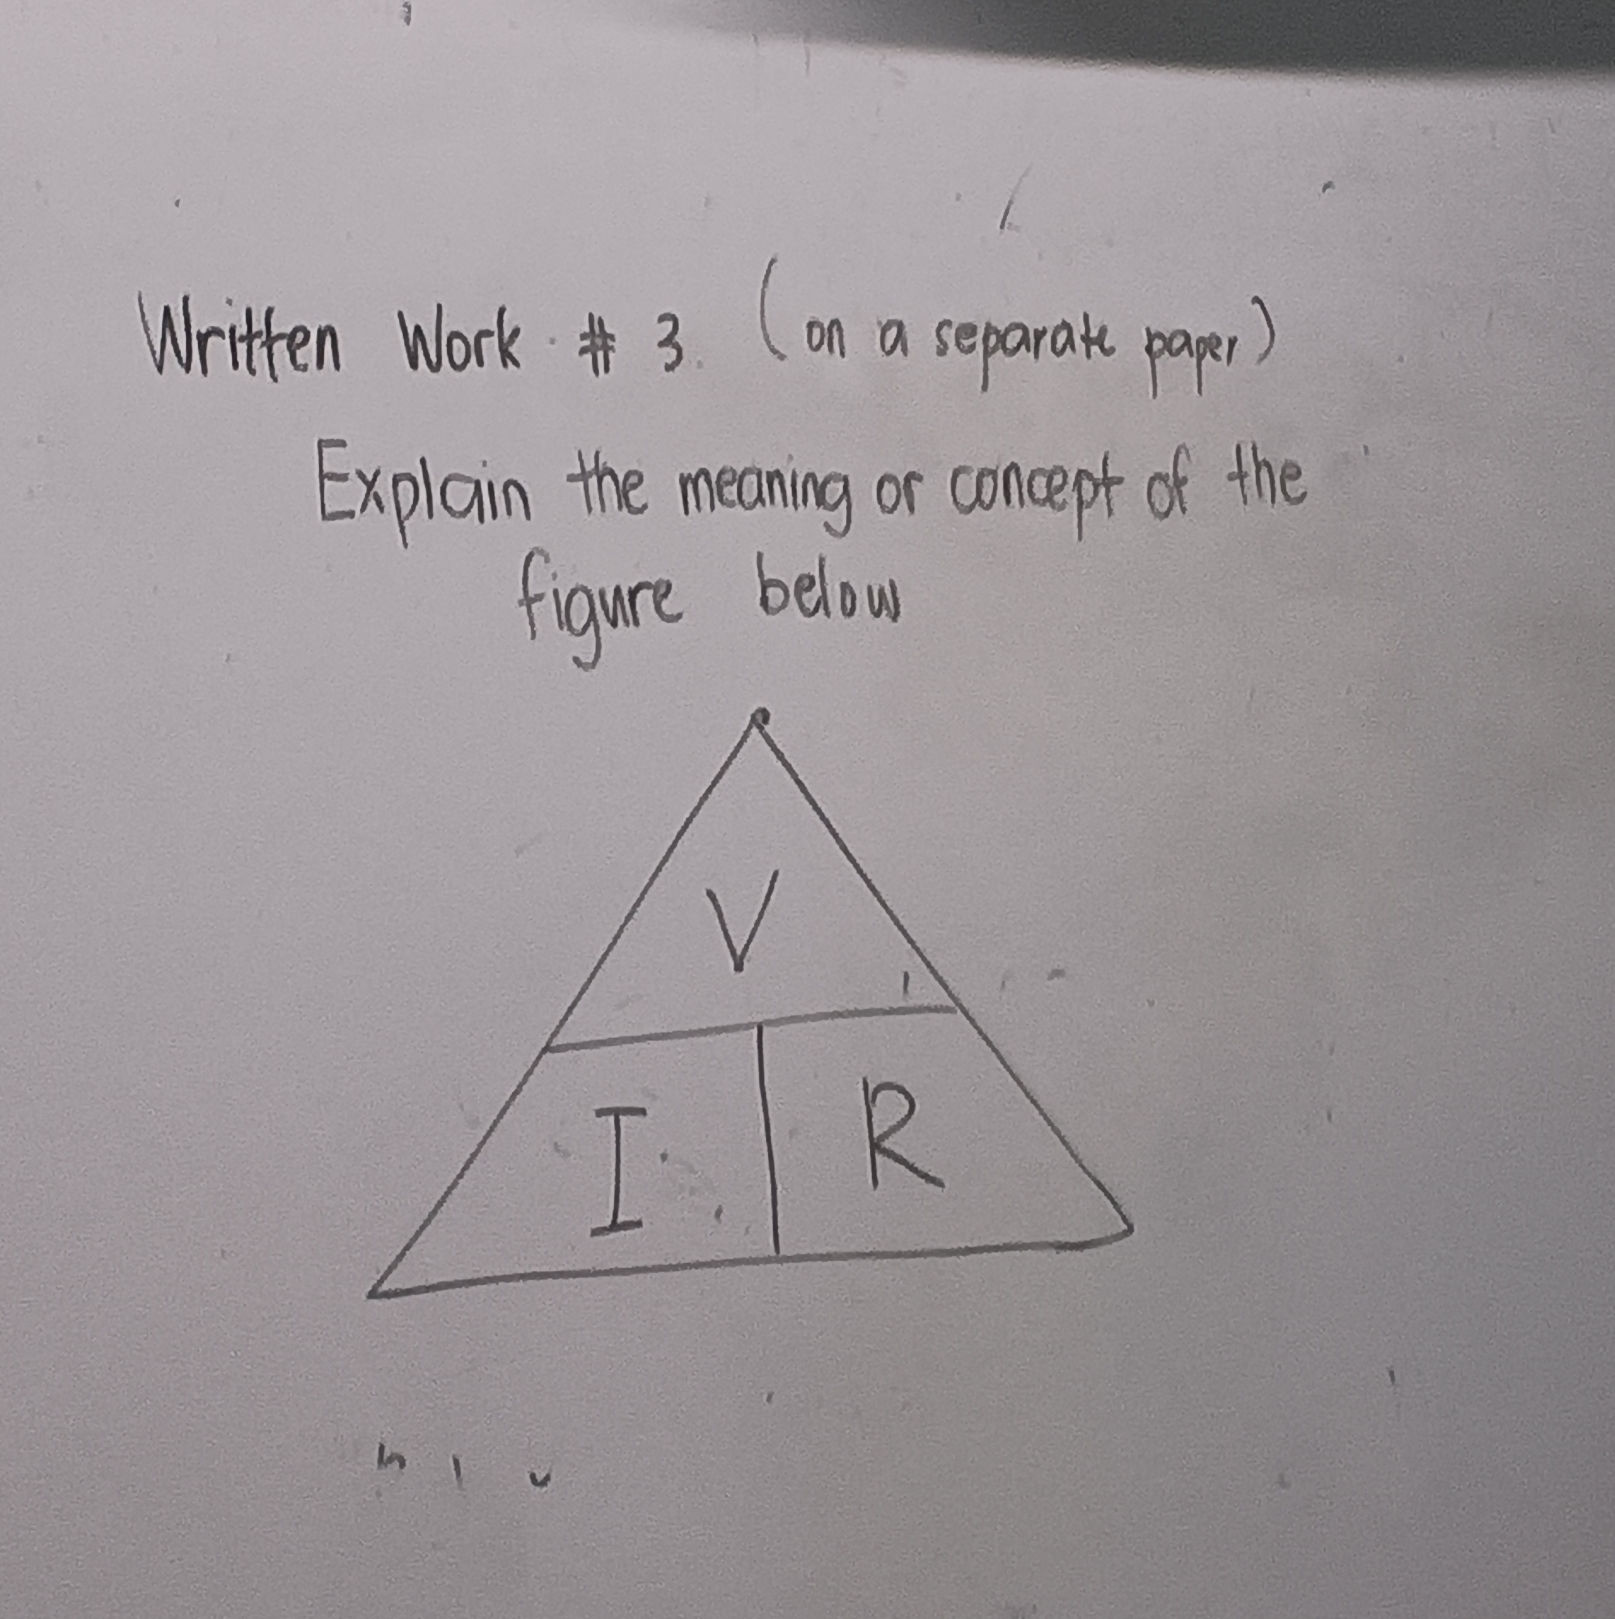 Written Work # 3. (on a separate paper)
Explain the meaning or concept of the
figure below
V
I R